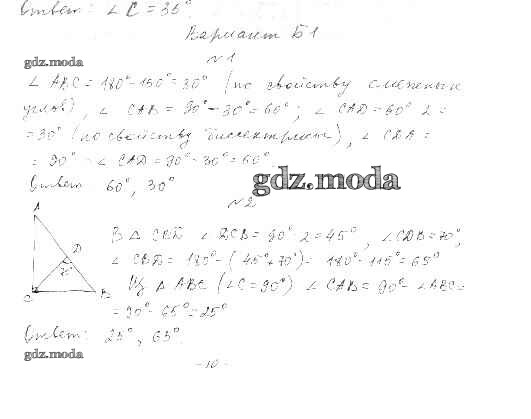 Ответ: ∠C = 35°.
Вариант Б1
№1
gdz.moda
∠ABC = 180° - 150° = 30° (по свойству смежных
углов), ∠CAB = 90° - 30° = 60°; ∠CAD = 60° : 2 =
= 30° (по свойству биссектрисы), ∠CDA =
= 90° - ∠CAD = 90° - 30° = 60°
Ответ: 60°, 30°
gdz.moda
№2
A
D
70°
C
B
В △ CBD ∠DCB = 90° : 2 = 45°, ∠CDB = 70°,
∠CBD = 180° - (45° + 70°) = 180° - 115° = 65°
Из △ ABC (∠C = 90°) ∠CAB = 90° - ∠ABC =
= 90° - 65° = 25°
Ответ: 25°, 65°.
gdz.moda
- 10 -